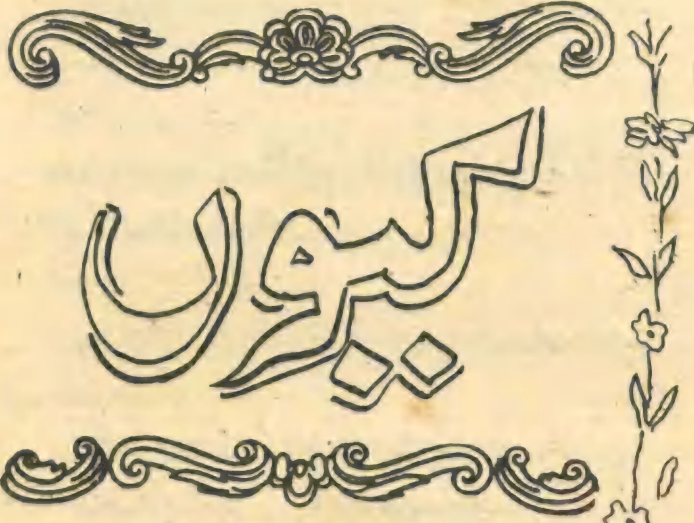 کیوں